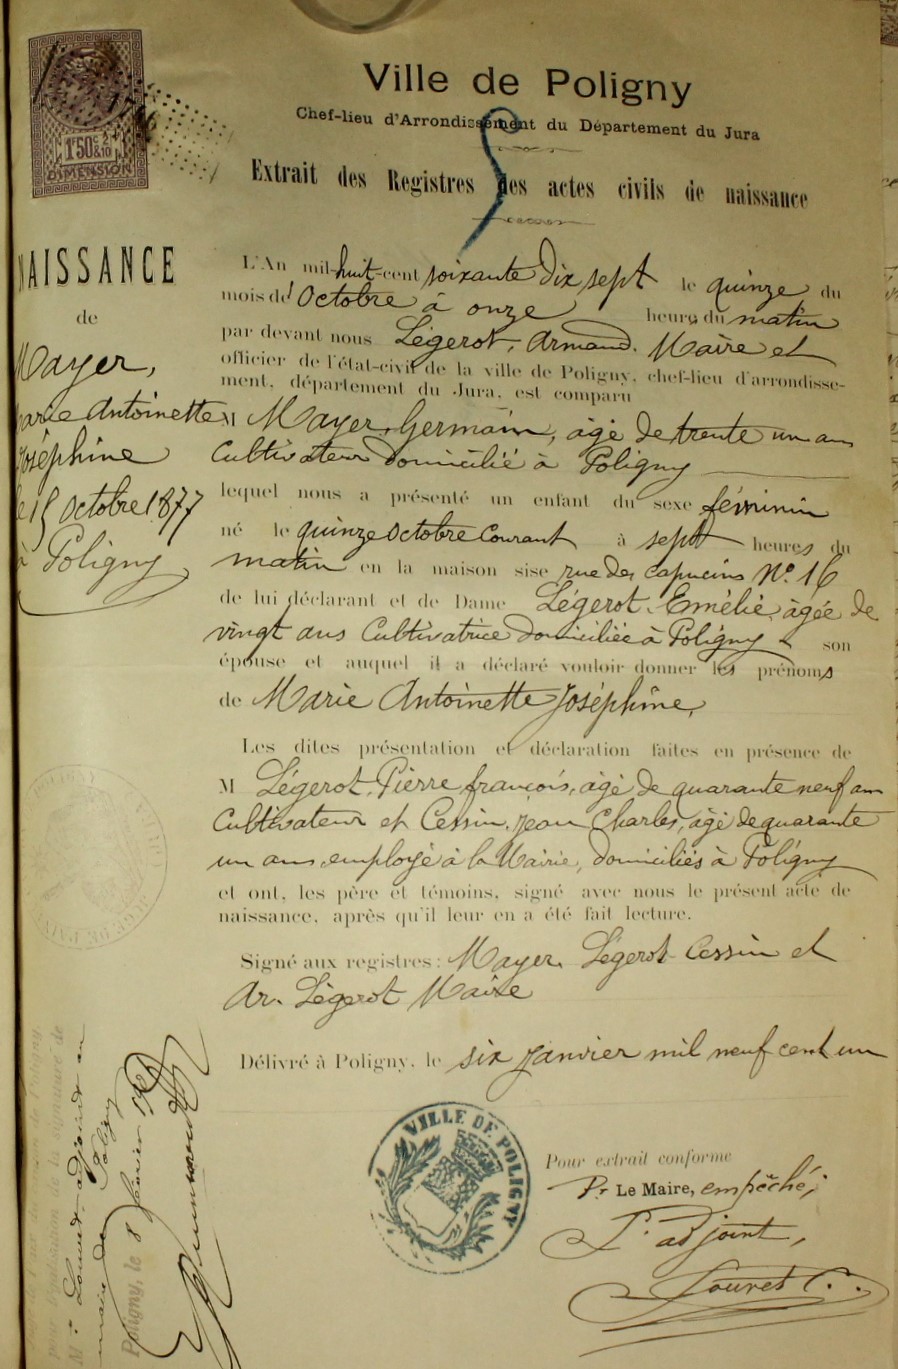 Ville de Poligny
Chef-lieu d'Arrondissement du Département du Jura
Extrait des Registres des actes civils de naissance
1F50c 2/10
DIMENSION
NAISSANCE
de
Mayer,
Marie Antoinette
Joséphine
le 15 octobre 1877
à Poligny
L'An mil-huit-cent soixante Dix sept le quinze du
mois d'Octobre à onze heures du matin
par devant nous Légerot, Armand, Maire et
officier de l'état-civil de la ville de Poligny, chef-lieu d'arrondisse-
ment, département du Jura, est comparu
M Mayer, Germain, âgé de trente un ans
Cultivateur domicilié à Poligny
lequel nous a présenté un enfant du sexe féminin
né le quinze octobre courant à sept heures du
matin en la maison sise rue des capucins No. 16
de lui déclarant et de Dame Légerot Emélie, âgée de
vingt ans Cultivatrice domiciliée à Poligny son
épouse et auquel il a déclaré vouloir donner les prénoms
de Marie Antoinette Joséphine,
Les dites présentation et déclaration faites en présence de
M Légerot, Pierre françois, âgé de quarante neuf ans
Cultivateur et Cessin, Jean Charles, âgé de quarante
un ans, employé à la Mairie, domiciliés à Poligny
et ont, les père et témoins, signé avec nous le présent acte de
naissance, après qu'il leur en a été fait lecture.
Signé aux registres: Mayer, Légerot Cessin et
Ar. Légerot Maire
Délivré à Poligny, le six janvier mil neuf cent un
VILLE DE POLIGNY
Pour extrait conforme
Pr Le Maire, empêché,
L'adjoint,
Louvet C.
pour légalisation de la signature de
M. Louvet adjoint au
maire de Poligny
Poligny, le 8 février